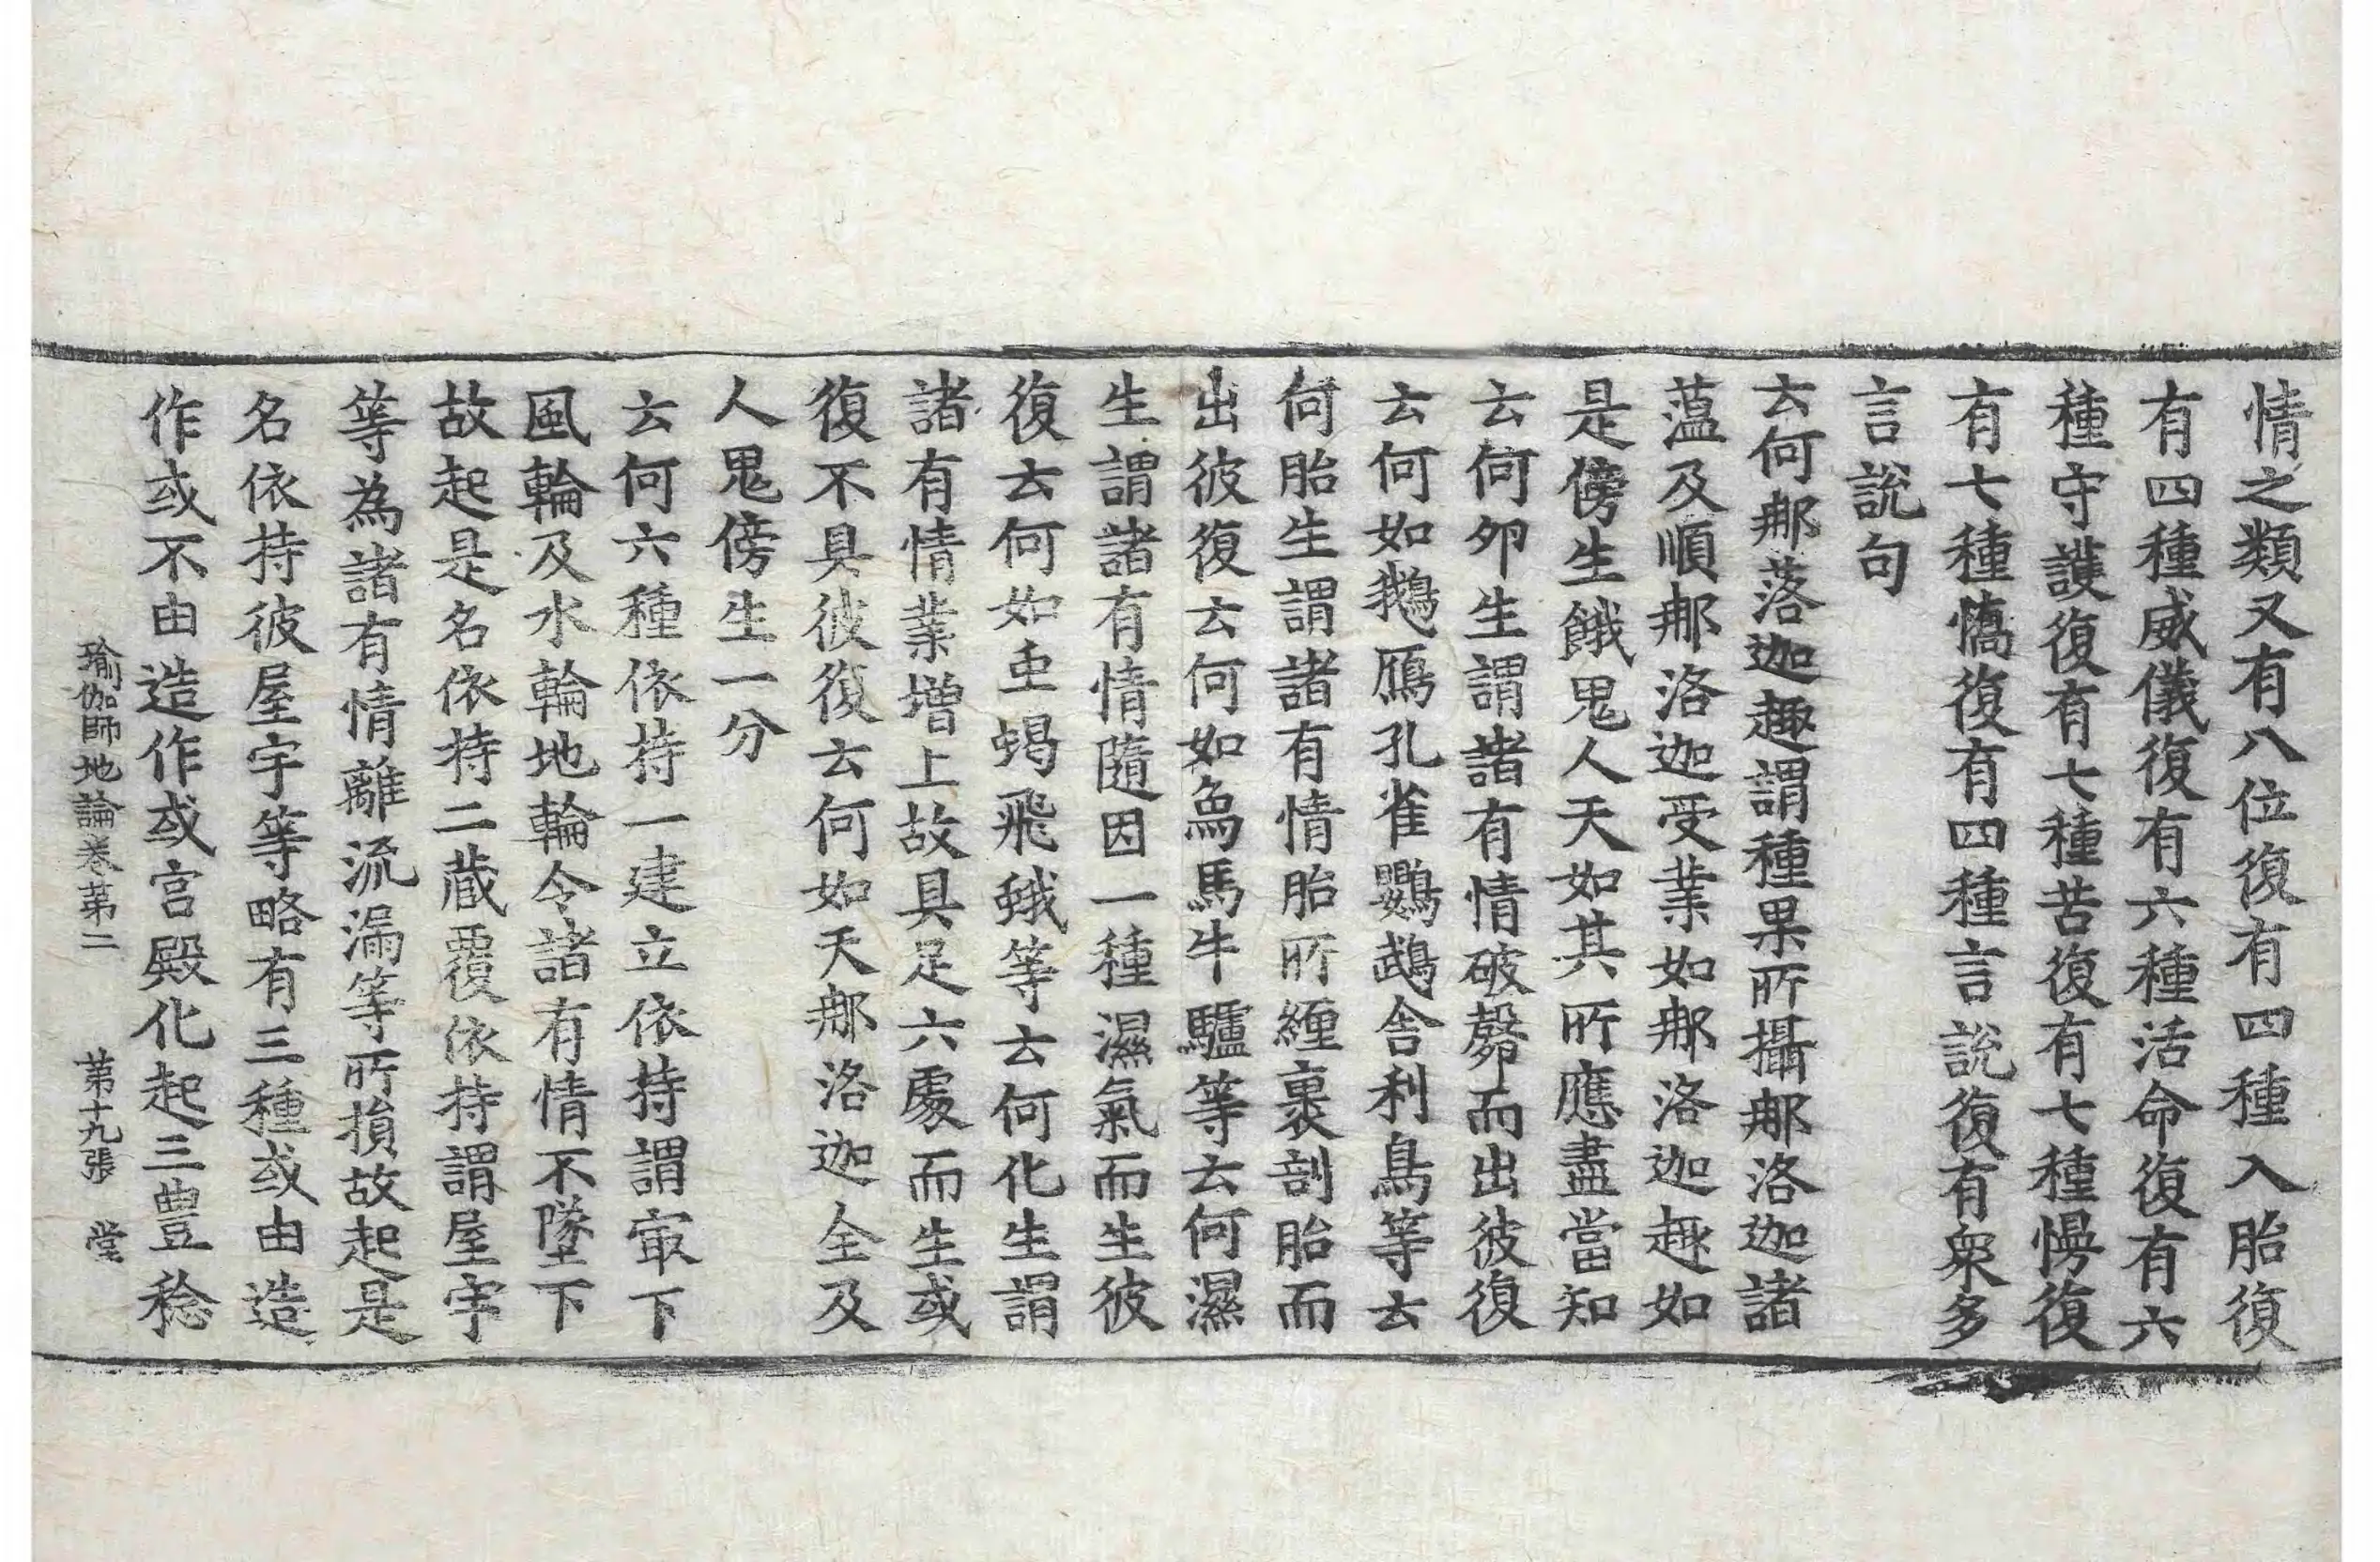 情之類又有八位復有四種入胎復
有四種威儀復有六種活命復有六
種守護復有七種苦復有七種慢復
有七種憍復有四種言說復有衆多
言說句
云何那落迦趣謂種果所攝那洛迦諸
薀及順那洛迦受業如那洛迦趣如
是傍生餓鬼人天如其所應盡當知
云何夘生謂諸有情破㲉而出彼復
云何如鵝鴈孔雀鸚鵡舍利鳥等云
何胎生謂諸有情胎所纏裹剖胎而
出彼復云何如象馬牛驢等云何濕
生謂諸有情隨因一種濕氣而生彼
復云何如虫蝎飛蛾等云何化生謂
諸有情業增上故具足六處而生或
復不具彼復云何如天那洛迦全及
人鬼傍生一分
云何六種依持一建立依持謂㝡下
風輪及水輪地輪令諸有情不墜下
故起是名依持二蔵覆依持謂屋宇
等為諸有情離流漏等所損故起是
名依持彼屋宇等略有三種或由造
作或不由造作或宮殿化起三豊稔
瑜伽師地論卷苐二 苐十九張 堂